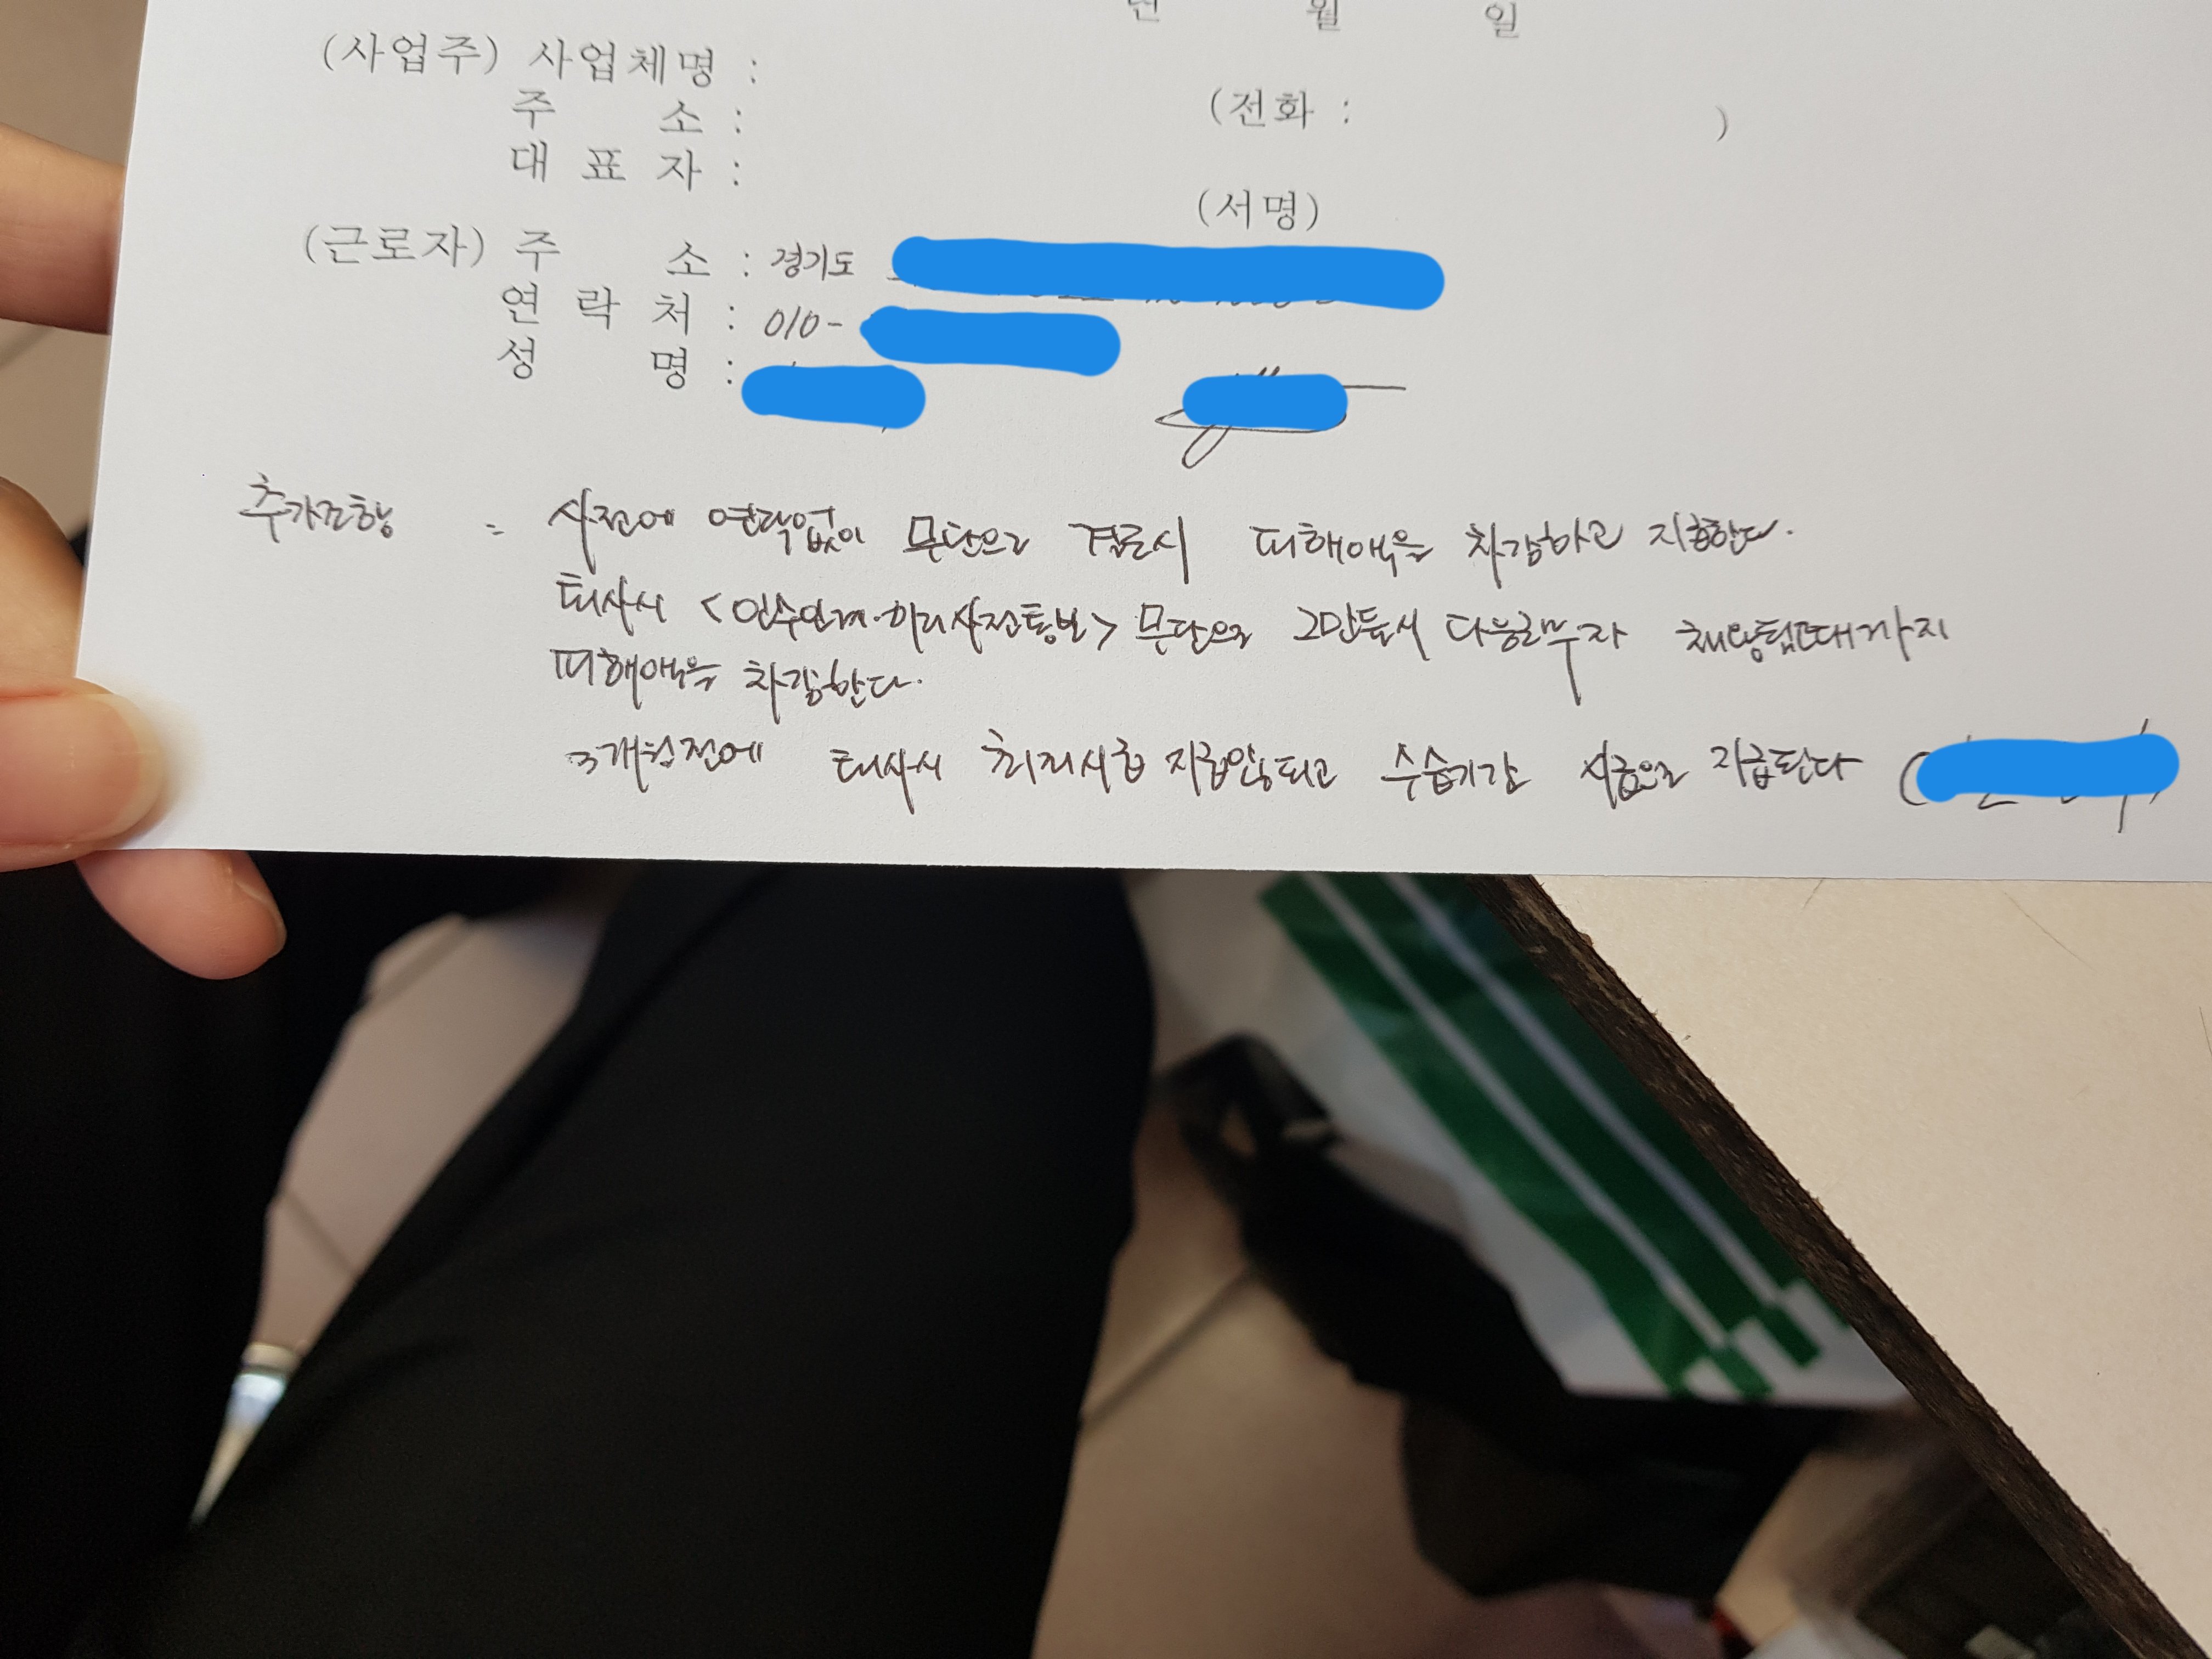 년 월 일
(사업주) 사업체명 :
주 소 : (전화 : )
대 표 자 : (서명)
(근로자) 주 소 : 경기도
연 락 처 : 010-
성 명 :
추가조항 = 사전에 연락없이 무단으로 결근시 피해액을 차감하고 지급한다.
퇴사시 <인수인계·미리사전통보> 무단으로 그만둘시 다음근무자 채용될때까지
피해액을 차감한다.
3개월전에 퇴사시 최저시급 지급안되고 수습기간 시급으로 지급된다 (